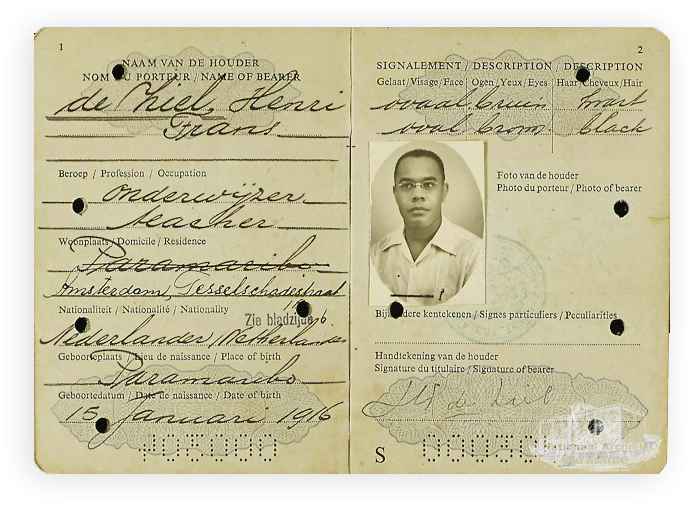 1
NAAM VAN DE HOUDER
NOM DU PORTEUR / NAME OF BEARER
de Ziel, Henri
Frans
Beroep / Profession / Occupation
onderwijzer
teacher
Woonplaats / Domicile / Residence
Paramaribo
Amsterdam, Tesselschadestraat
Nationaliteit / Nationalité / Nationality
Zie bladzijde 6
Nederlander, Netherlander
Geboorteplaats / Lieu de naissance / Place of birth
Paramaribo
Geboortedatum / Date de naissance / Date of birth
15 Januari 1916
2
SIGNALEMENT / DESCRIPTION / DESCRIPTION
Gelaat/Visage/Face Ogen/Yeux/Eyes Haar/Cheveux/Hair
ovaal bruin zwart
oval brown black
Foto van de houder
Photo du porteur / Photo of bearer
Bijzondere kentekenen / Signes particuliers / Peculiarities
Handtekening van de houder
Signature du titulaire / Signature of bearer
de Ziel
S
Nationaal Archief